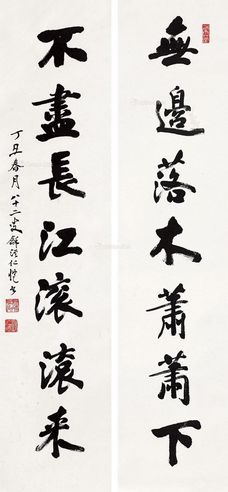 無邊落木蕭蕭下
不盡長江滾滾来
丁丑春月八十二叟